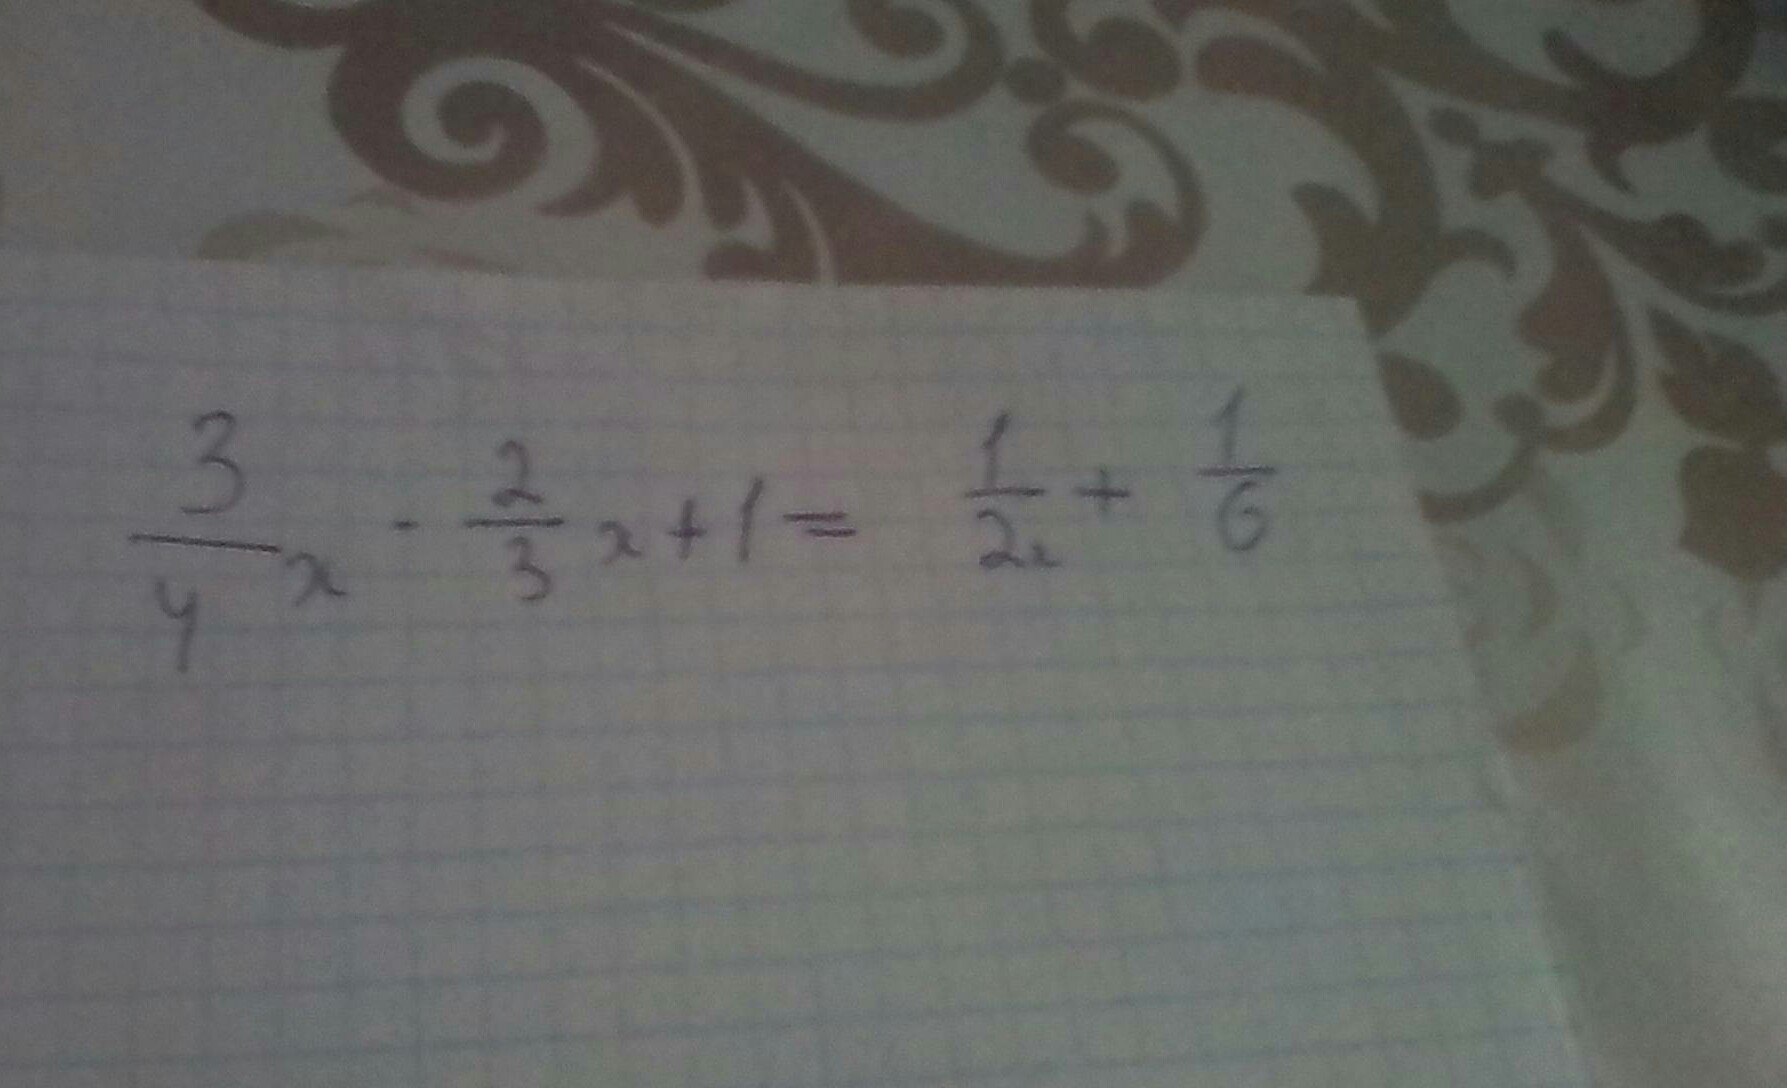 3/4 x - 2/3 x + 1 = 1/2x + 1/6